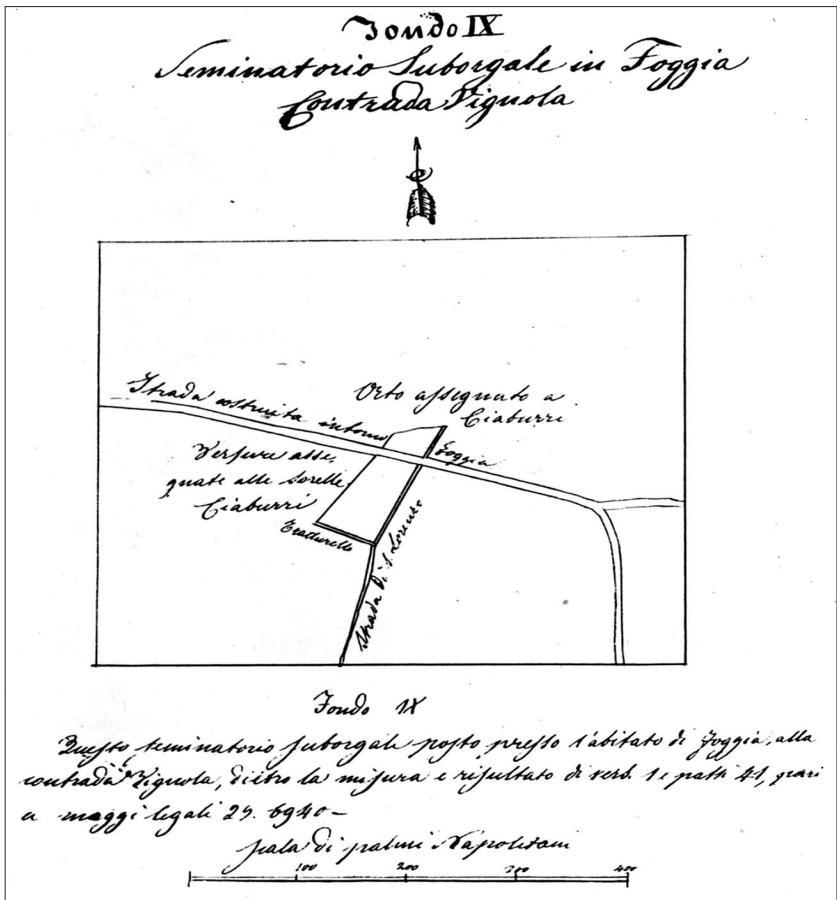 Fondo IX
Seminatorio Suborgale in Foggia
Contrada Vignola
Strada costruita intorno Foggia
Orto assegnato a
Ciaburri
Versure asse,
gnate alle sorelle
Ciaburri
Tratturello
Strada di S. Lorenzo
Fondo IX
Questo seminatorio suborgale posto presso l'abitato di Foggia, alla
contrada Vignola, dietro la misura è risultato di vers. 1 e passi 41, pari
a moggi legali 25. 6940 –
Scala di palmi Napoletani
100 200 300 400